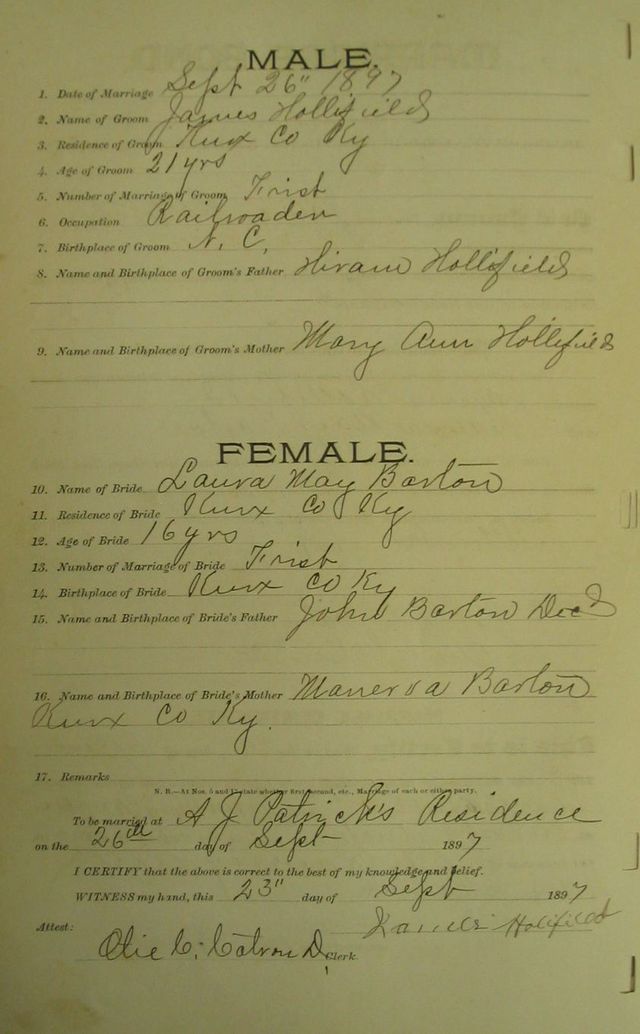 MALE.
1. Date of Marriage Sept 26" 1897
2. Name of Groom James Hollifield
3. Residence of Groom Knox Co Ky
4. Age of Groom 21 yrs
5. Number of Marriage of Groom Frist
6. Occupation Railroader
7. Birthplace of Groom N. C.
8. Name and Birthplace of Groom's Father Hiram Hollifield
9. Name and Birthplace of Groom's Mother Mary Ann Hollifield
FEMALE.
10. Name of Bride Laura May Barton
11. Residence of Bride Knox Co Ky
12. Age of Bride 16 yrs
13. Number of Marriage of Bride Frist
14. Birthplace of Bride Knox Co Ky
15. Name and Birthplace of Bride's Father John Barton Decd
16. Name and Birthplace of Bride's Mother Manerva Barton
Knox Co Ky.
17. Remarks
N. B.—At Nos. 5 and 13 state whether first, second, etc., Marriage of each or either party.
To be married at A J Patrick's Residence
on the 26th day of Sept 1897
I CERTIFY that the above is correct to the best of my knowledge and belief.
WITNESS my hand, this 23" day of Sept 1897
Hollifield
Attest:
Catron D. Clerk